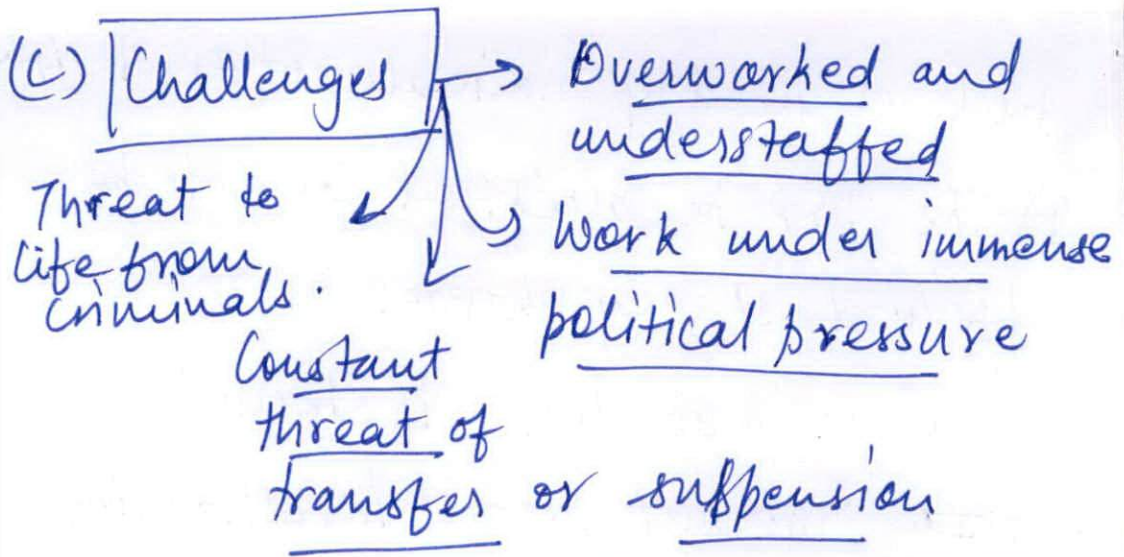 (C) Challenges → Overworked and
understaffed
Threat to
life from
criminals.
Work under immense
political pressure
Constant
threat of
transfer or suspension